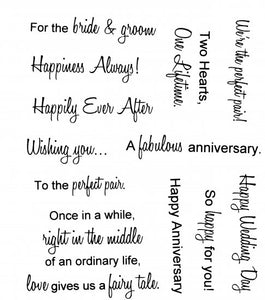 For the bride & groom
Happiness Always!
Happily Ever After
Two Hearts,
One Lifetime.
We're the perfect pair!
Wishing you...
A fabulous anniversary.
To the perfect pair.
Once in a while,
right in the middle
of an ordinary life,
love gives us a fairy tale.
Happy Anniversary
So happy for you!
Happy Wedding Day